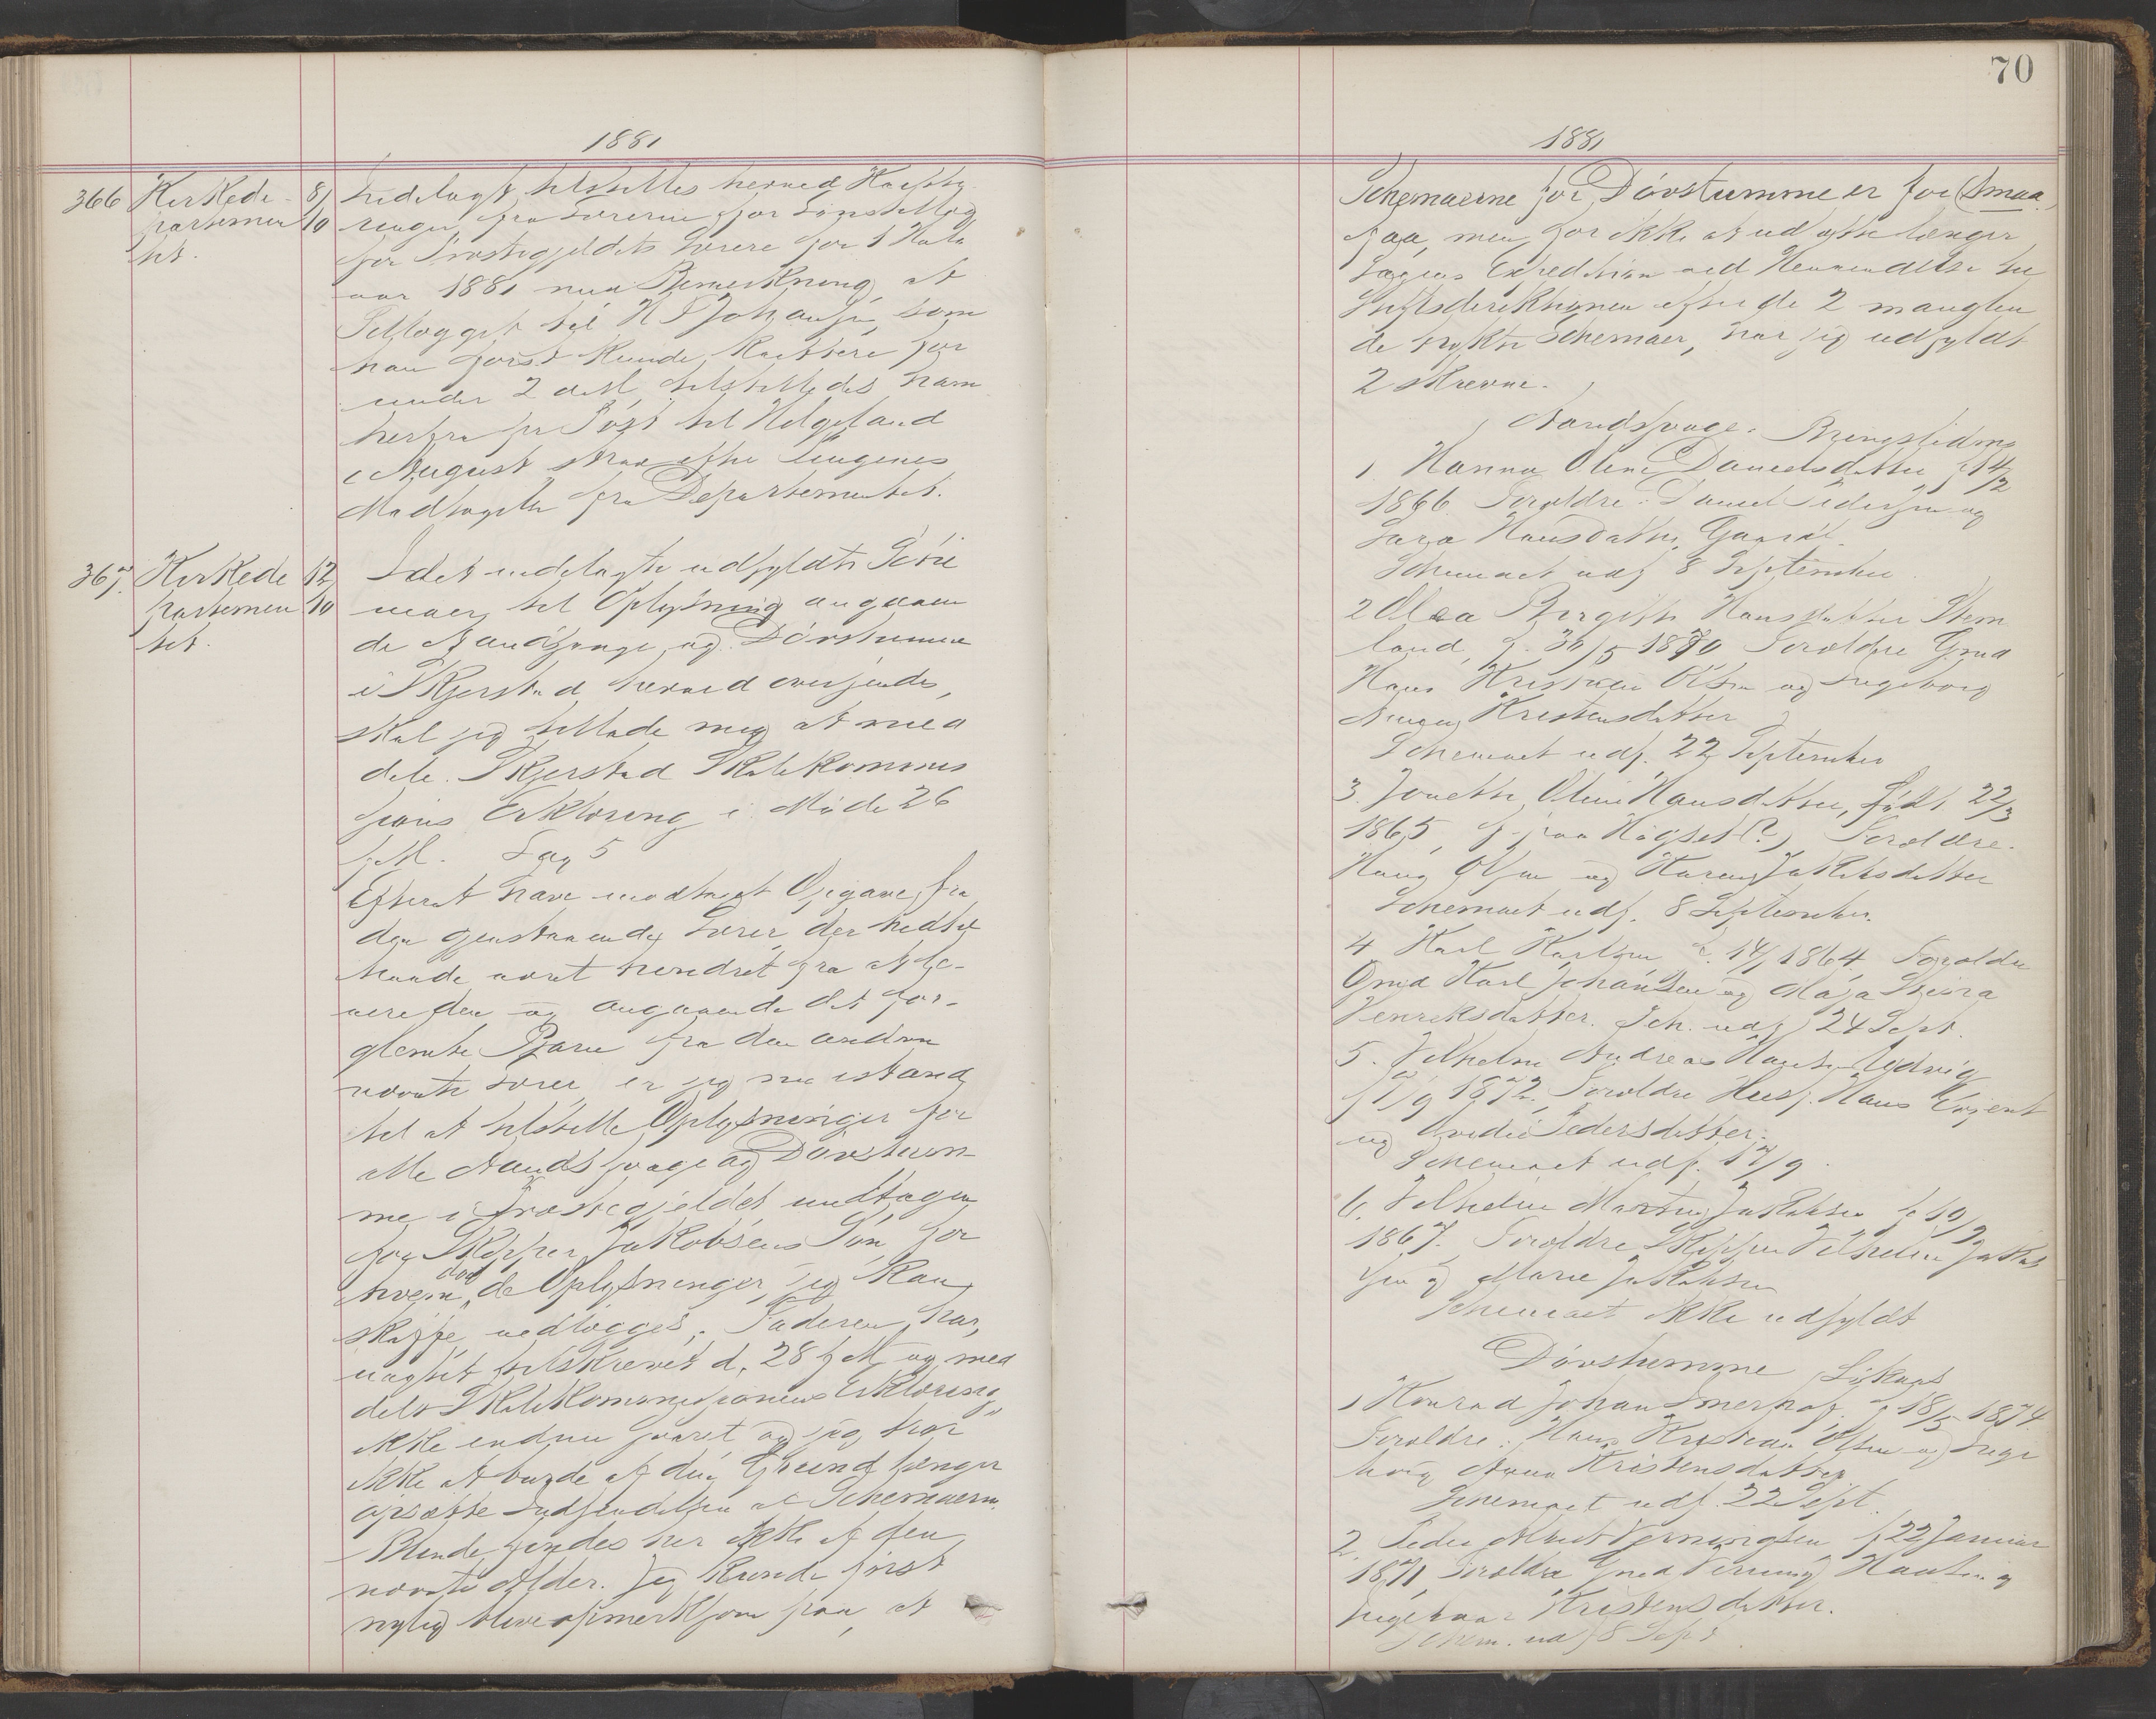 1881
366 Kirkede- 8/
partemen 10
tet.
Indelagt tilstilles herved Kvitte
ringer fra Lærerne for
for Præstegjeldets Lærere for 1 Halv
aar 1881 med Bemerkning, at
til H P Johansen, som
han først kunde kvittere for
under 2 tilstilledes ham
herfra pr Post til Helgeland
i August strax efter Pengenes
Modtagelse fra Departementet.
367. Kirkede 12/
partemen 10
tet.
Idet indelagte udfyldte Sche
maer til Oplysning angaaen
de Aandssvage og Døvstumme
i Skjerstad herved oversendes,
skal jeg tillade mig at med
dele Skjerstad Skolekommis
sions Erklæring i Møde 26
f. M. Sag 5
Efterat have modtaget Opgave fra
den gjenstaaende Lærer, der hidtil
havde været hindret fra at le-
vere den og angaaende det for-
glemte Barn fra den anden
nævnte Lærer, er jeg nu istand
til at tilstille Oplysninger for
alle Aandssvage og Døvstum-
me i Præstegjeldet undtagen
for Skipper Jakobsens Søn for
hvem dog de Oplysninger, jeg kan
skaffe vedlægges. Faderen har,
uagtet tilskrevet d. 28 f. M. og med
delt Skolekommissionens Erklæring,
ikke endnu svaret og jeg tror
ikke at burde af den Grund længer
opsætte Indsendelsen af Schemaerne.
Blinde findes her ikke af den
nævnte Alder. Jeg kunde først
nylig blive opmerksom paa, at
70
1881
Schemaerne for Døvstumme er for smaa
faa, men for ikke at udsætte længer
Sagens Expedition ved Henvendelse til
Stiftsdirektionen efter de 2 manglen
de trykte Schemaer, har jeg udfyldt
2 skrevne.
Aandssvage.
1. Hanna Oline Danielsdatter f. 14/2
1866. Forældre: Daniel Pedersen og
Sara Hansdatter
Schemaet udf. 8 September
2 Olea Birgitte Hansdatter
land, f. 30/5 1870 Forældre Gmd
Hans Kristian Olsen og Ingeborg
Anna Kristensdatter
Schemaet udf. 22 September
3. Jonette Oline Hansdatter, født 22/3
1865, f. paa Høgset (?) Forældre.
Hans Olsen og Karen Jakobsdatter
Schemaet udf. 8 September.
4 Karl Karlsen f. 14/1 1864. Forældre
Gmd Karl Johansen og Maja
Henriksdatter. Sch. udf. 24 Sept.
5. Vilhelm Andreas Hansen
f. 1/9 1872. Forældre Husf. Hans
og Pedersdatter.
Schemaet udf. 17/9.
6. Vilhelm Martin Jakobsen f. 19/9
1867. Forældre Skipper Vilhelm Jakob
sen og Marie Jakobsen
Schemaet ikke udfyldt
Døvstumme
1 Konrad Johan f. 18/5 1874
Forældre: Hans Kristian Olsen og Inge
borg Anna Kristensdatter.
Schemaet udf. 22 Sept.
2. Peder Albert f. 22 Januar
1871, Forældre Gmd Hansen og
Ingeborg Kristensdatter.
Schem. udf 8 Sept